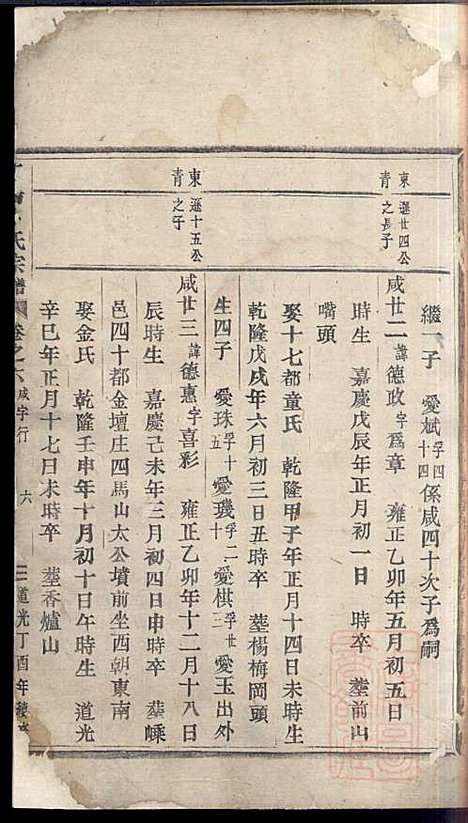 繼一子 愛斌孚四十四係咸四十次子爲嗣
東青 遜廿四公之長子
咸廿二諱德政字爲章 雍正乙卯年五月初五日
時生 嘉慶戊辰年正月初一日 時卒 塟前山
嘴頭
娶十七都童氏 乾隆甲子年正月十四日未時生
乾隆戊戌年六月初三日丑時卒 塟楊梅岡頭
生四子 愛珠孚十五 愛璣孚二十 愛棋孚廿三 愛玉出外
東青 遜十五公之子
咸廿三諱德惠字喜彩 雍正乙卯年十二月十八日
辰時生 嘉慶己未年三月初四日申時卒 塟嵊
邑四十都金壇庄四馬山太公墳前坐西朝東南
娶金氏 乾隆壬申年十月初十日午時生 道光
辛巳年正月十七日未時卒 塟香爐山
氏宗譜 卷之六 咸字行 六 道光丁酉年